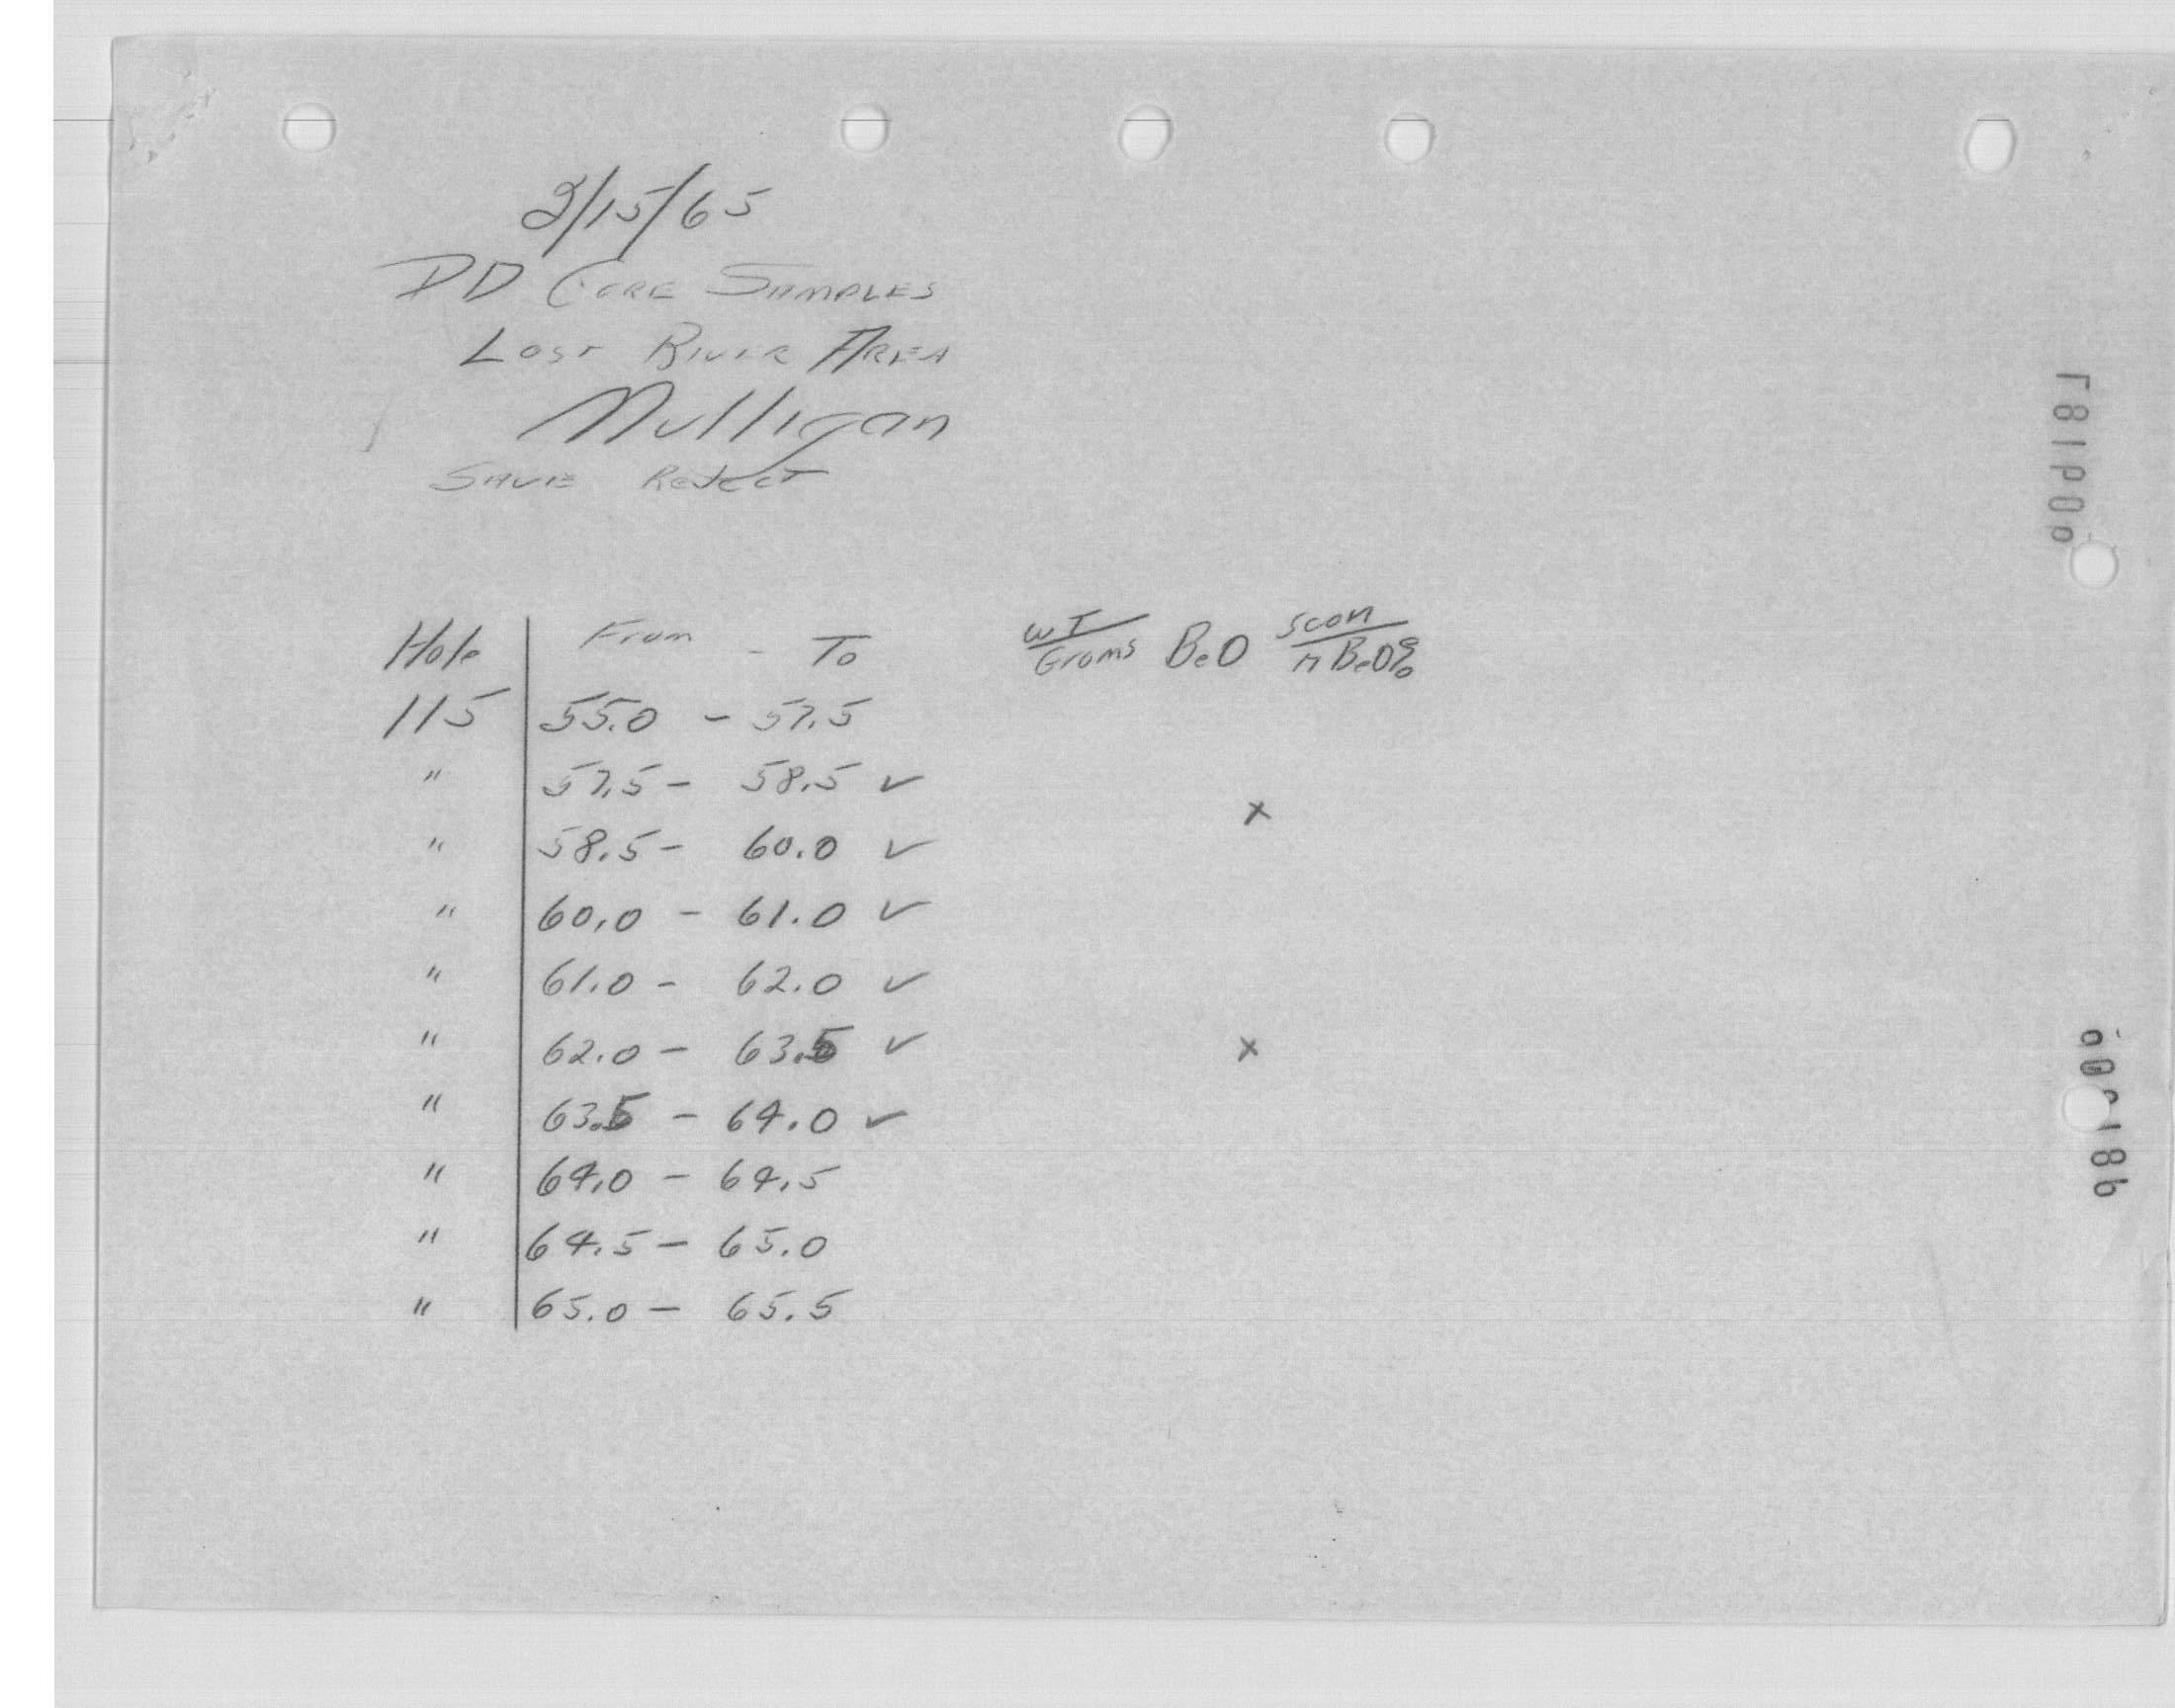 2/15/65
DD CORE SAMPLES
LOST RIVER AREA
Mulligan
SAVE REJECT
Hole From - To WT/Grams BeO scan/n BeO%
115 55.0 - 57.5
" 57.5 - 58.5 ✓
" 58.5 - 60.0 ✓ x
" 60.0 - 61.0 ✓
" 61.0 - 62.0 ✓
" 62.0 - 63.5 ✓ x
" 63.5 - 64.0 ✓
" 64.0 - 64.5
" 64.5 - 65.0
" 65.0 - 65.5